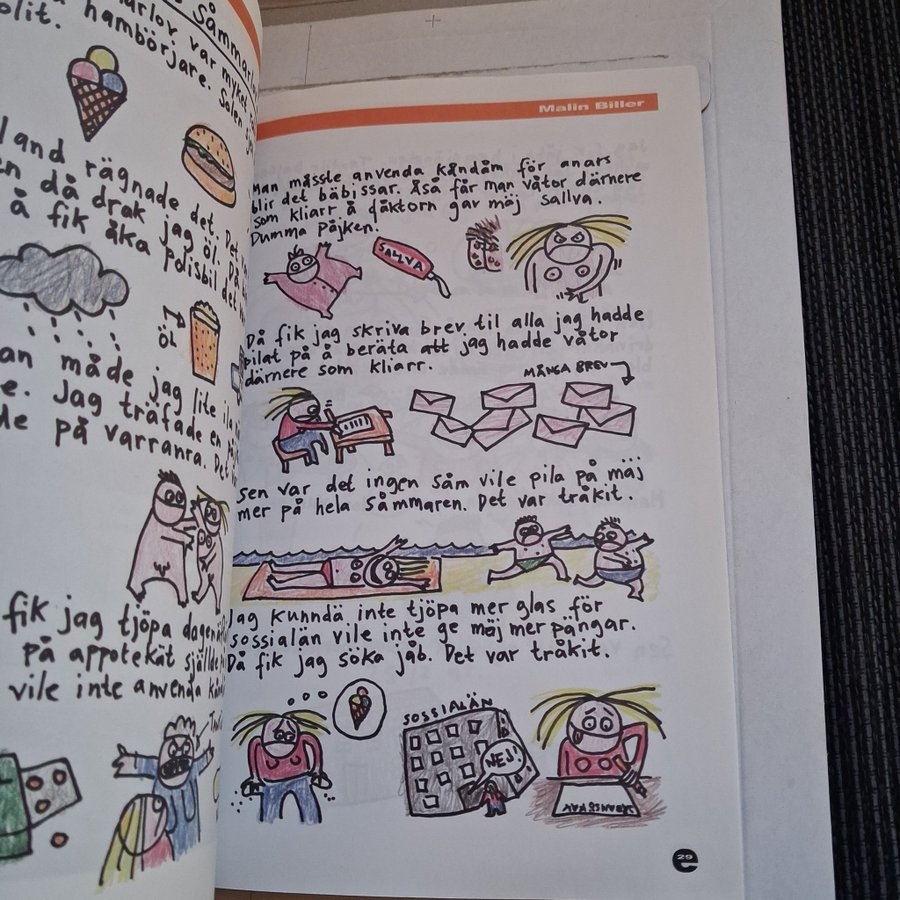 Såmmarlov
marlov var myket
olit. hambörjare. Solen
land rägnade det. Det
en då drak jag öl. Då
å fik åka polisbil det
ÖL
an måde jag lite ila
e. Jag träfade en
de på varranra. Det
fik jag tjöpa
på appotekät sjäilde
vile inte anvenda
Malin Biller
Man måsste anvenda kåndåm för anars
blir det bäbissar. Åså får man våtor därnere
som kliarr å dåktorn gav mäj sallva.
Dumma påjken.
SALLVA
Då fik jag skriva brev til alla jag hadde
pilat på å beräta att jag hadde våtor
därnere som kliarr.
MÅNGA BREV
Sen var det ingen såm vile pila på mäj
mer på hela såmmaren. Det var tråkit.
Jag kunndä inte tjöpa mer glas för
sossialän vile inte ge mäj mer pängar.
Då fik jag söka jåb. Det var tråkit.
SOSSIALÄN
NEJ!
29
e